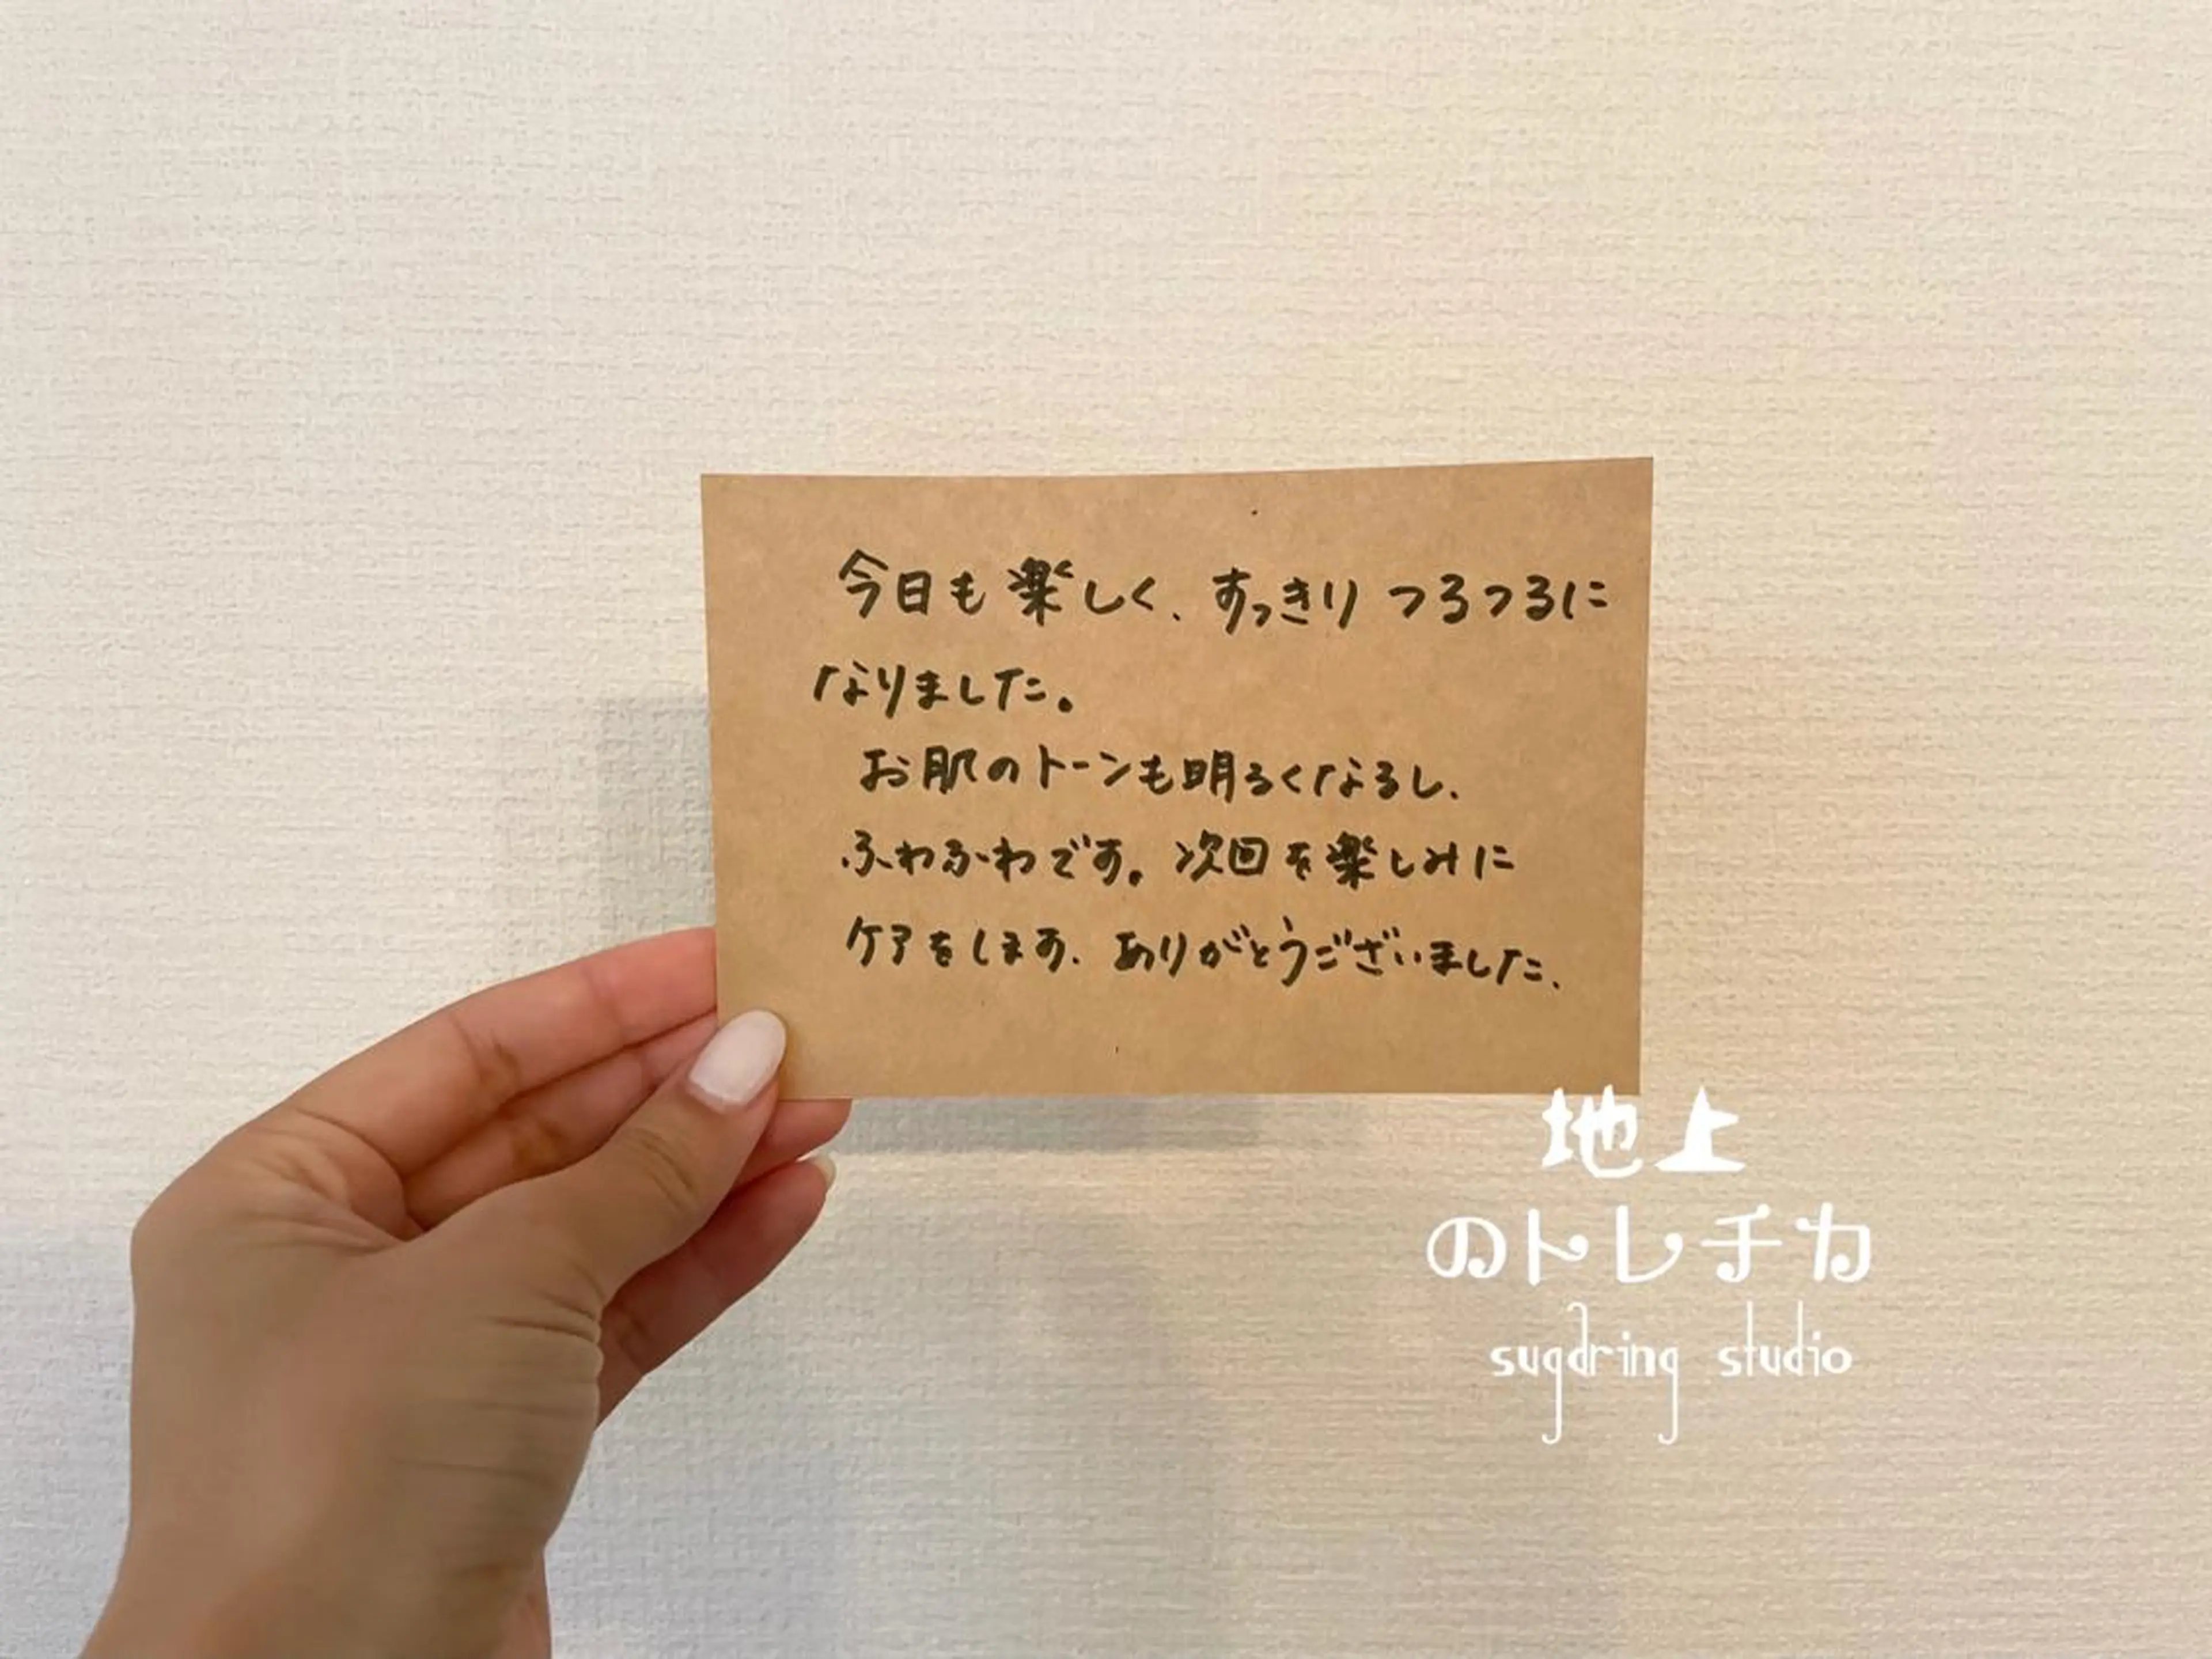 今日も楽しく、すっきりつるつるに
なりました。
お肌のトーンも明るくなるし、
ふわふわです。次回を楽しみに
ケアをします、ありがとうございました、
地上
のトレチカ
sugaring studio